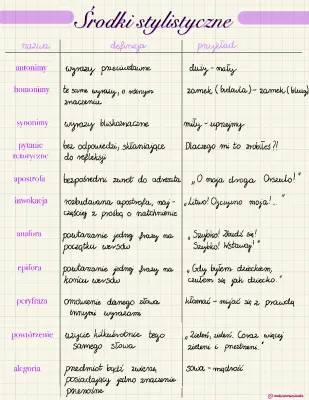 Środki stylistyczne
nazwa definicja przykład
antonimy wyrazy przeciwstawne duży - mały
homonimy te same wyrazy, o różnym znaczeniu zamek (budowla) - zamek (bluzy)
synonimy wyrazy bliskoznaczne miły - uprzejmy
pytanie retoryczne bez odpowiedzi, skłaniające do refleksji Dlaczego mi to zrobiłeś?!
apostrofa bezpośredni zwrot do adresata „O moja droga Orszulo!"
inwokacja rozbudowana apostrofa, najczęściej z prośbą o natchnienie „Litwo! Ojczyzno moja!..."
anafora powtarzanie jednej frazy na początku wersów „Szybko! Zbudź się! Szybko! Wstawaj!"
epifora powtarzanie jednej frazy na końcu wersów „Gdy byłem dzieckiem, czułem się jak dziecko."
peryfraza omówienie danego słowa innymi wyrazami kłamać - mijać się z prawdą
powtórzenie użycie kilkukrotnie tego samego słowa „Zieleń, zieleń. Coraz więcej zieleni i przestrzeni."
alegoria przedmiot bądź zwierzę posiadający jedno znaczenie przenośne sowa - mądrość